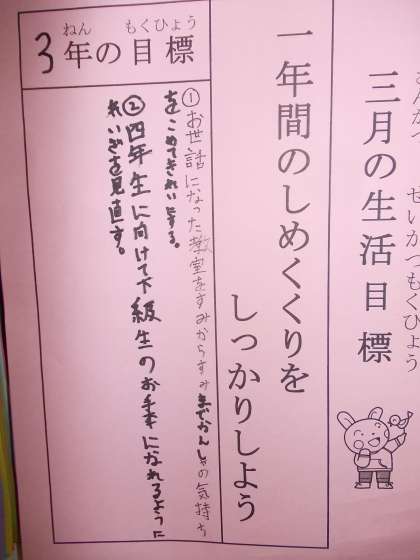 さんがつ せいかつもくひょう
三月の生活目標
一年間のしめくくりを
しっかりしよう
ねん もくひょう
3年の目標
①お世話になった教室をすみからすみまでかんしゃの気持ち
をこめてきれいにする。
②四年生に向けて下級生のお手本になれるように
れいぎを見直す。